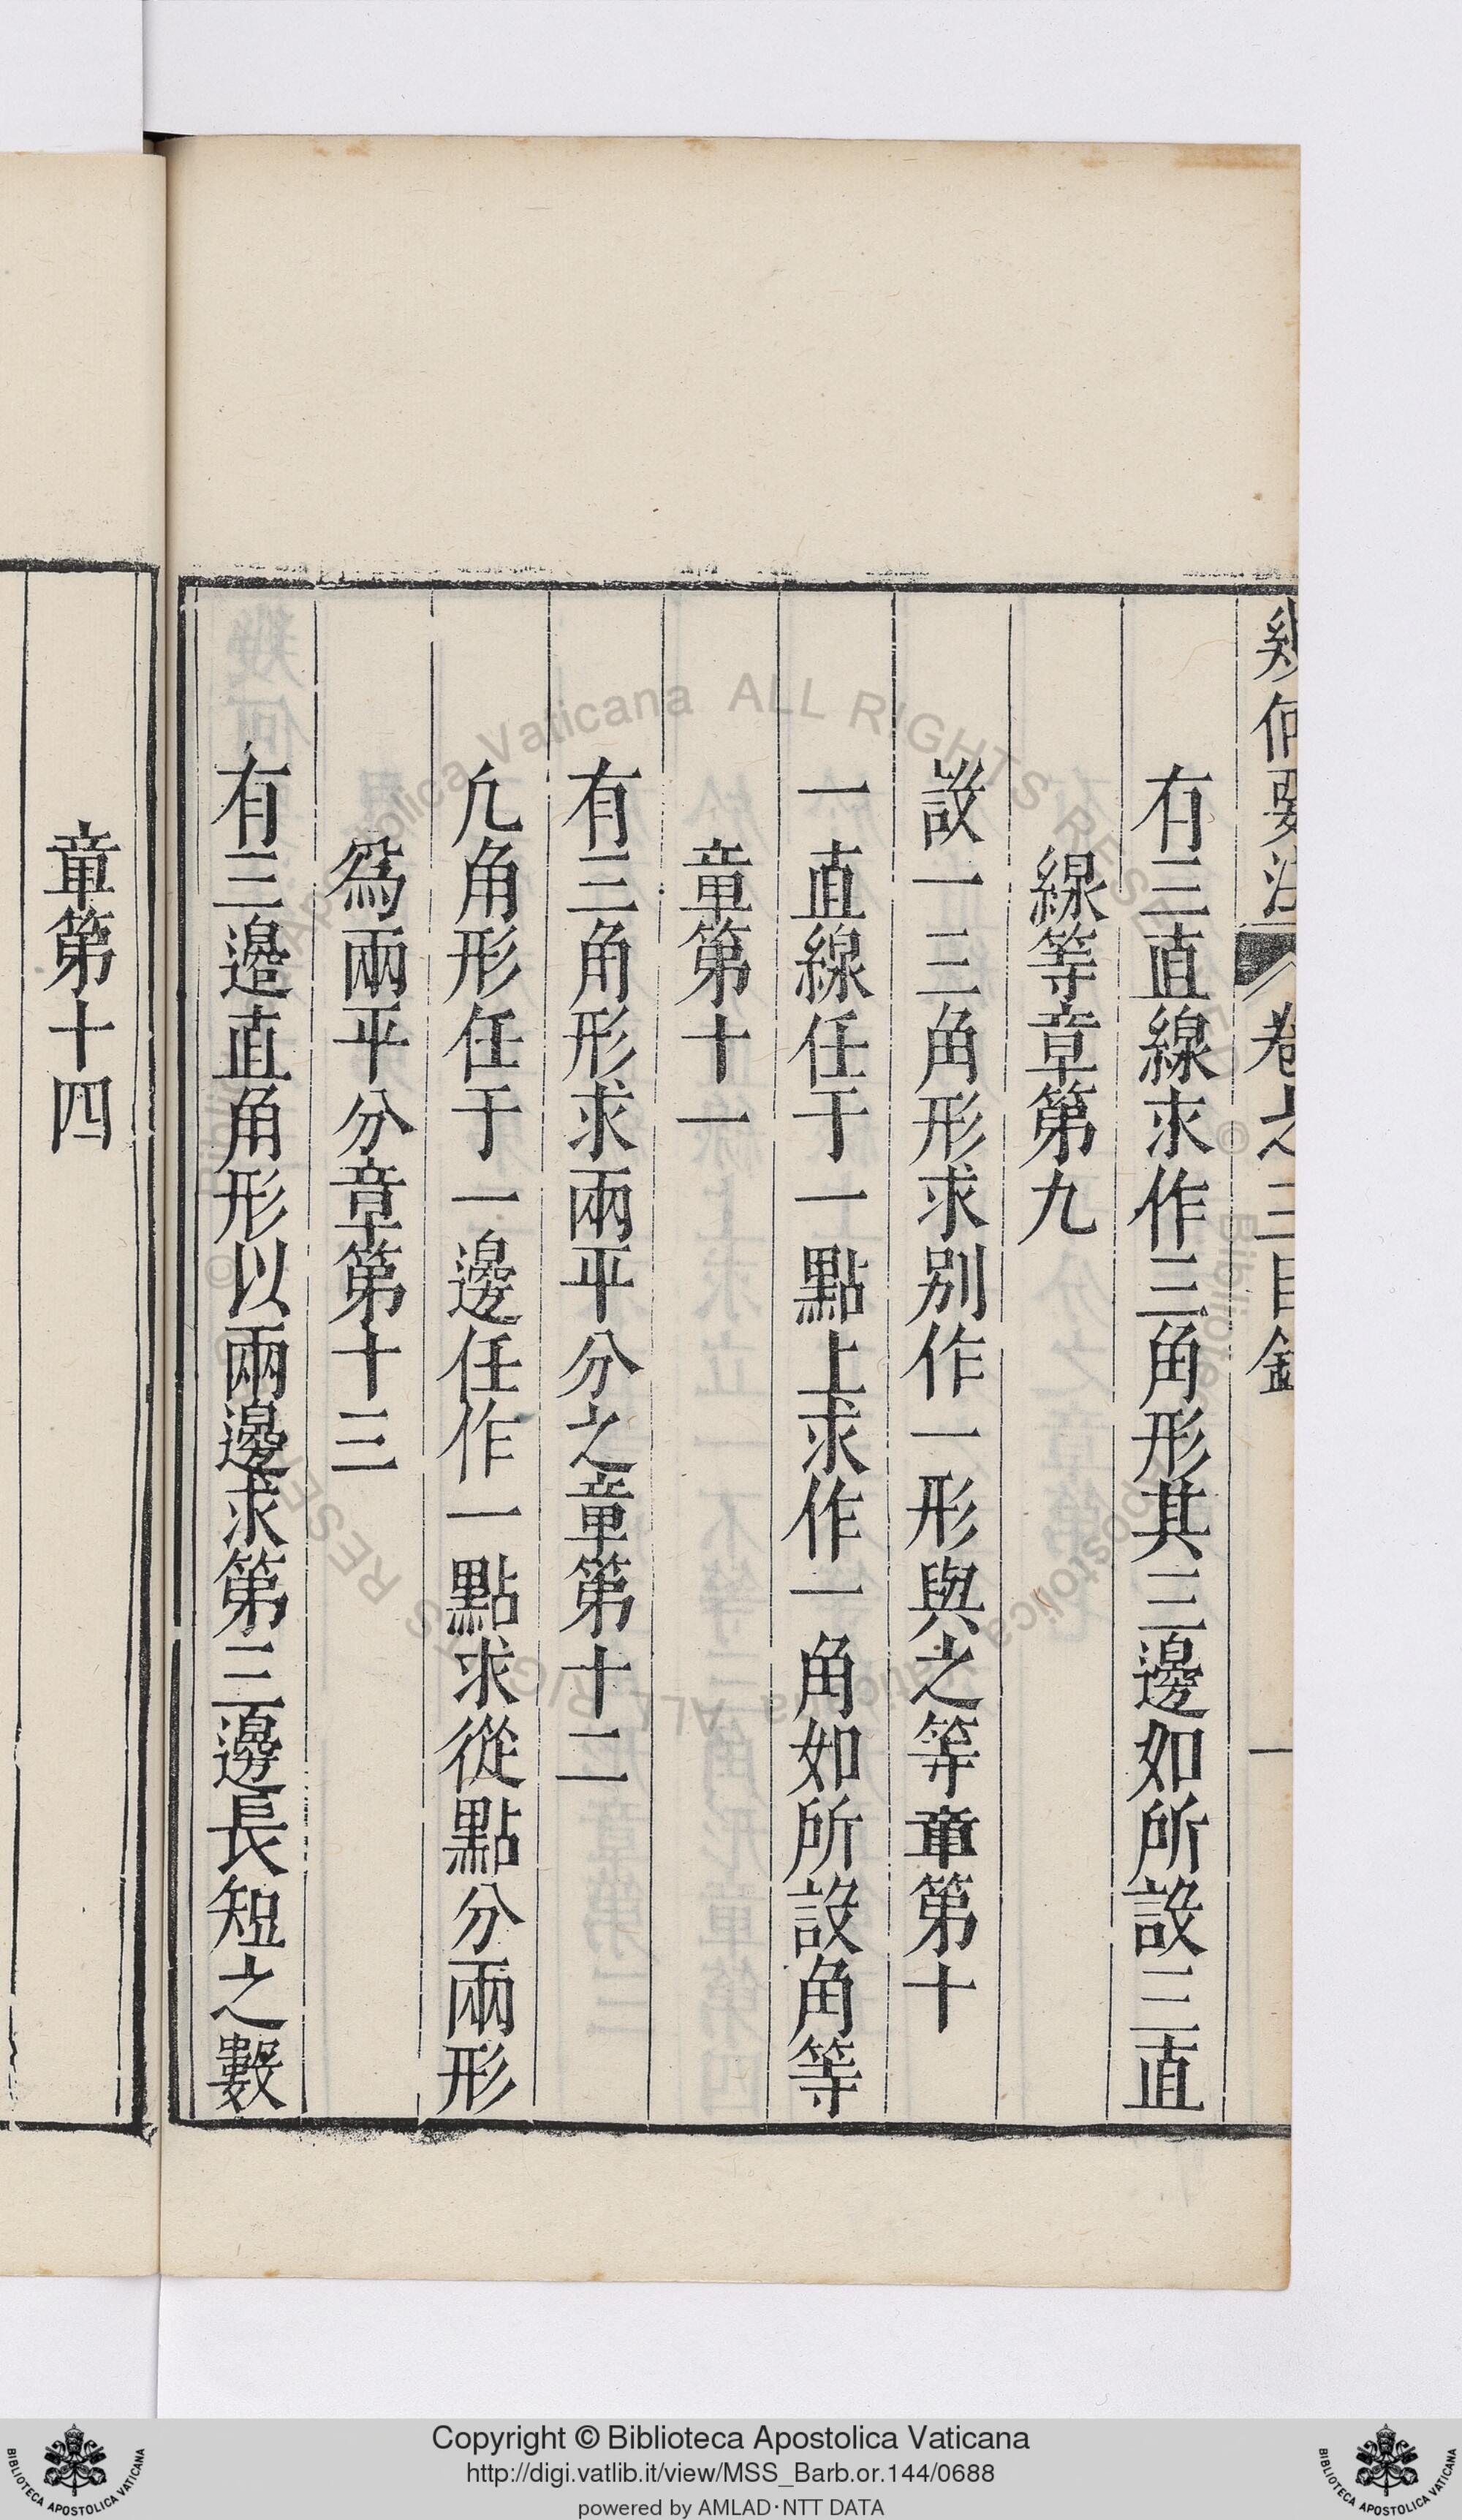 幾何要法 卷之三目錄 一
有三直線求作三角形其三邊如所設三直
線等章第九
設一三角形求別作一形與之等章第十
一直線任于一點上求作一角如所設角等
章第十一
有三角形求兩平分之章第十二
凢角形任于一邊任作一點求從點分兩形
爲兩平分章第十三
有三邊直角形以兩邊求第三邊長短之數
章第十四
Copyright © Biblioteca Apostolica Vaticana
http://digi.vatlib.it/view/MSS_Barb.or.144/0688
powered by AMLAD·NTT DATA
BIBLIOTECA APOSTOLICA VATICANA
BIBLIOTECA APOSTOLICA VATICANA